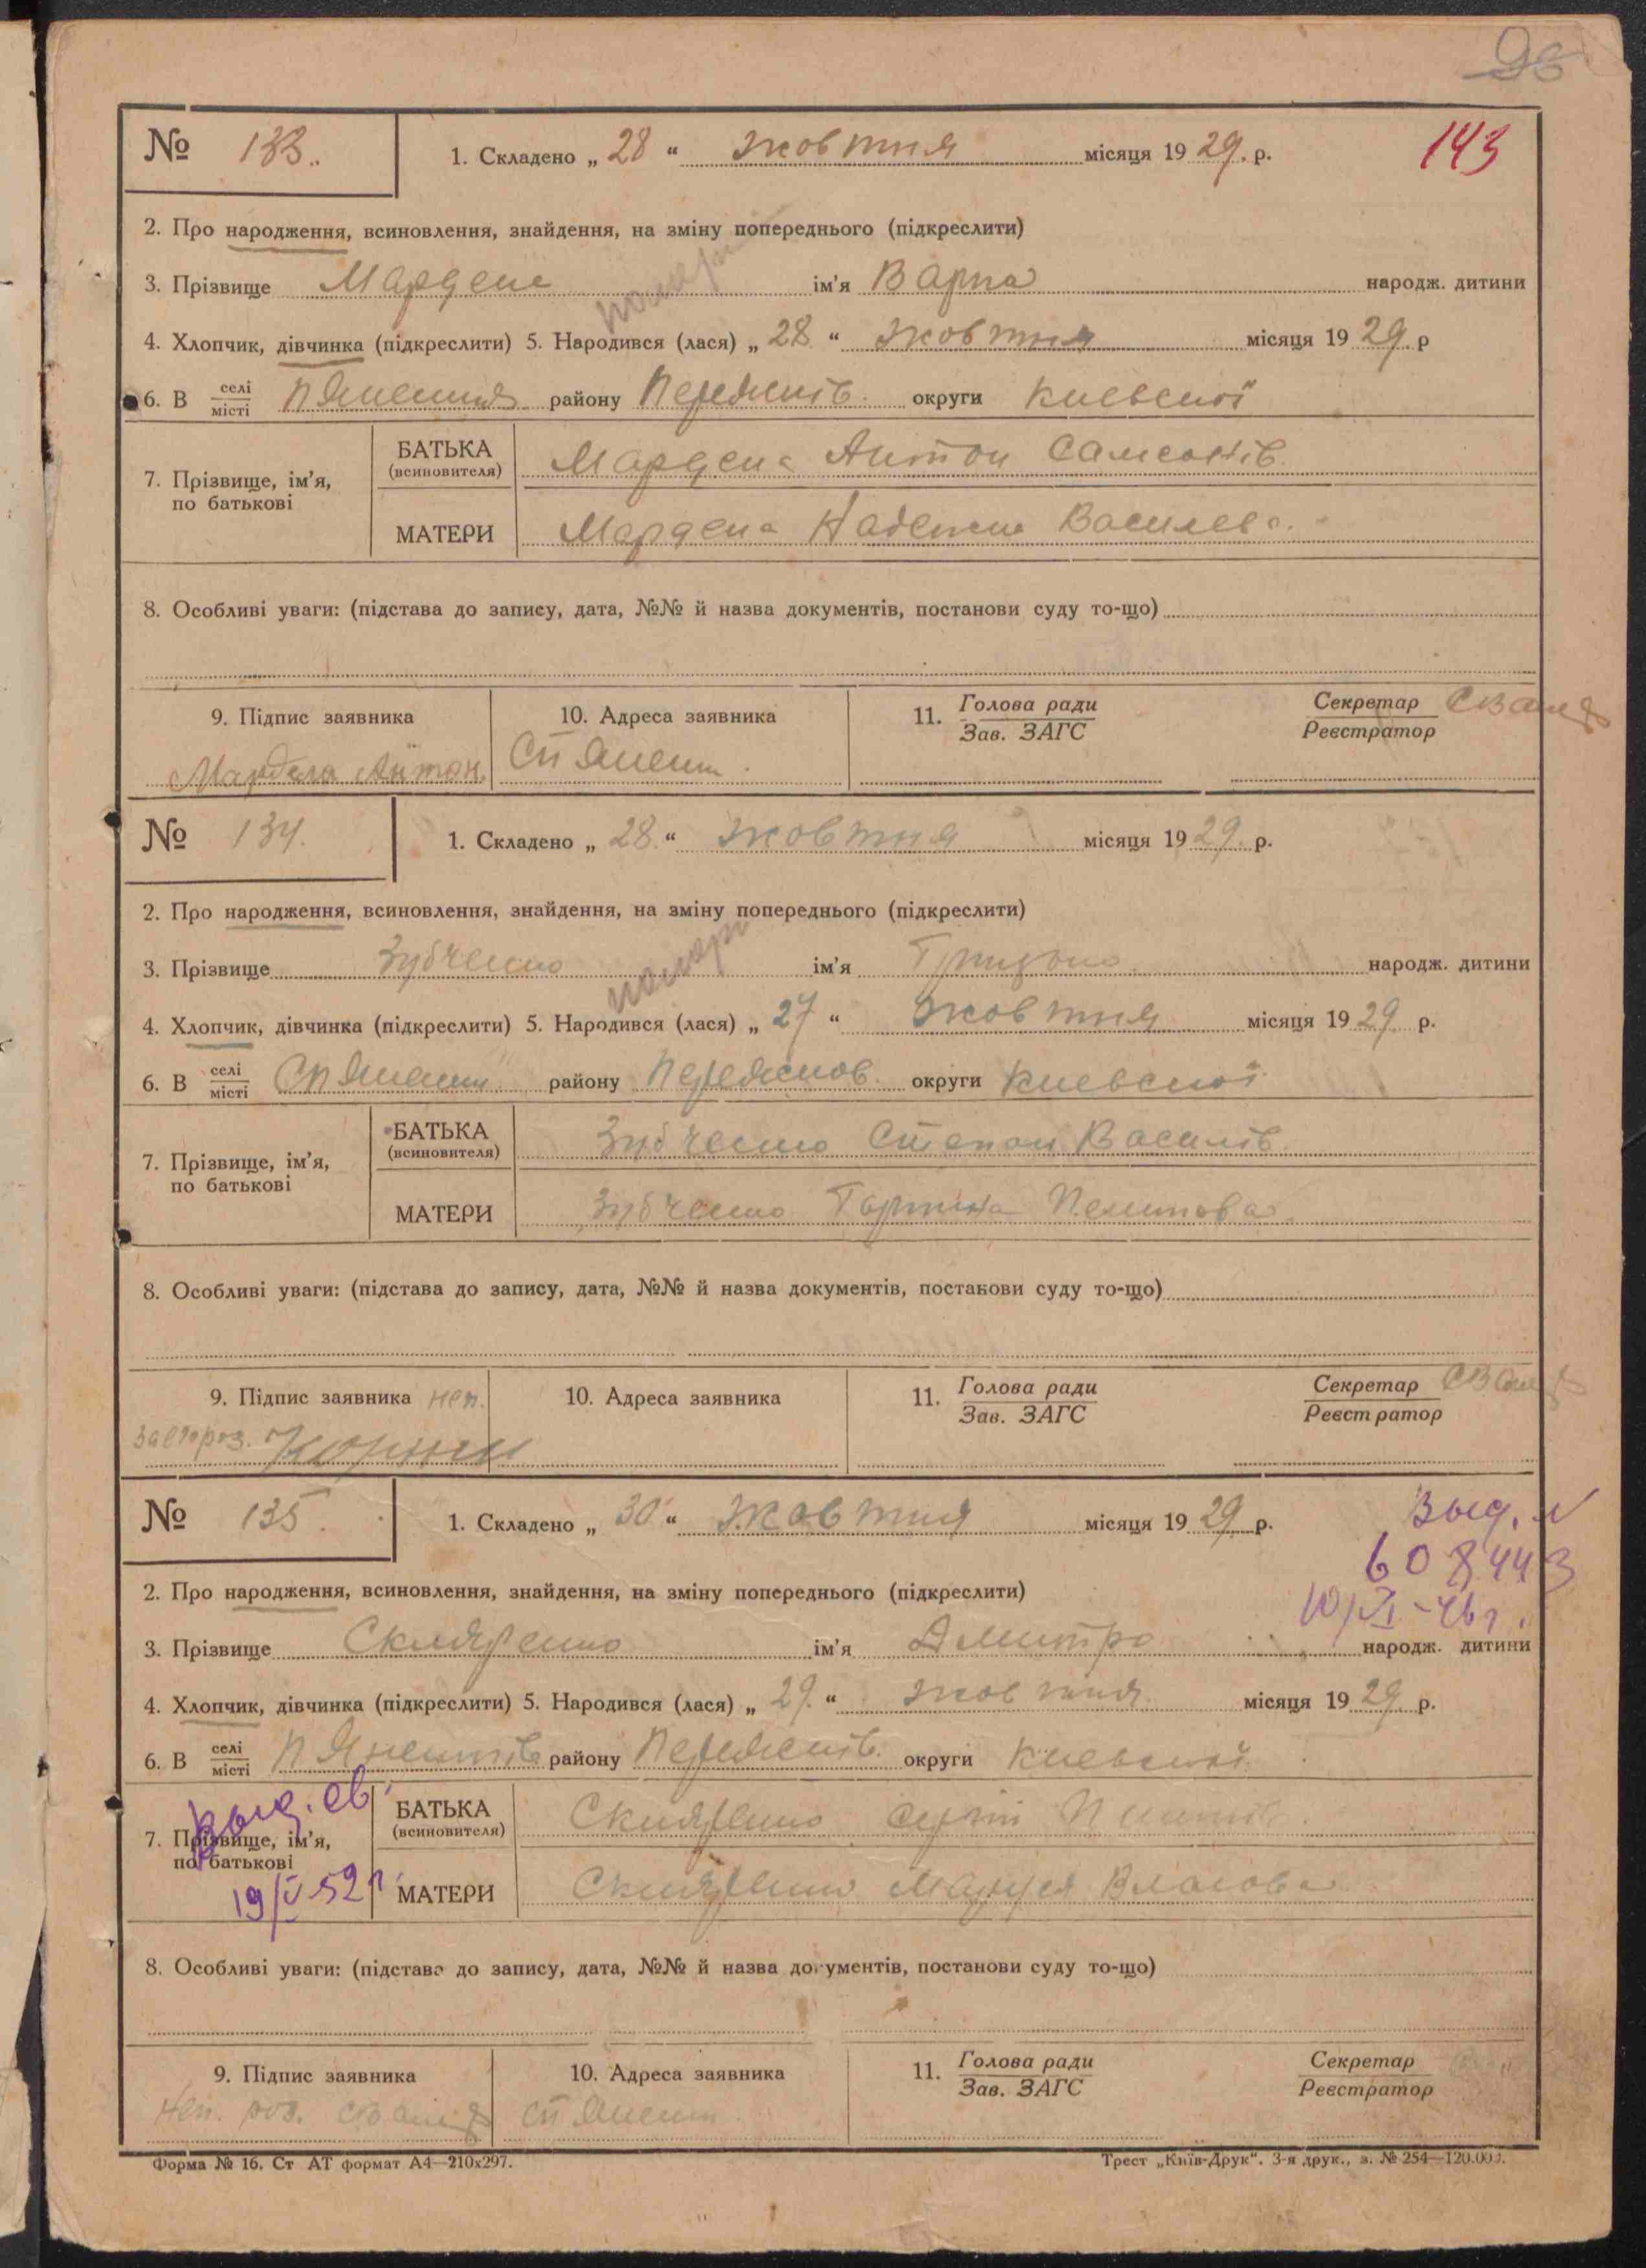 98
№ 133. 1. Складено „ 28 “ жовтня місяця 19 29. р. 143
2. Про народження, всиновлення, знайдення, на зміну попереднього (підкреслити)
3. Прізвище ім'я Варка народж. дитини
4. Хлопчик, дівчинка (підкреслити) 5. Народився (лася) „ 28 “ жовтня місяця 19 29 р
6. В селі/місті району Переяслів. округи Киевської
7. Прізвище, ім'я, по батькові
БАТЬКА (всиновителя) Антон Самсонів.
МАТЕРИ Василева.
8. Особливі уваги: (підстава до запису, дата, №№ й назва документів, постанови суду то-що)
9. Підпис заявника 10. Адреса заявника 11. Голова ради/Зав. ЗАГС Секретар/Реєстратор
Антон.
№ 134. 1. Складено „ 28. “ жовтня місяця 19 29. р.
2. Про народження, всиновлення, знайдення, на зміну попереднього (підкреслити)
помер
3. Прізвище Зубченко ім'я Грицько народж. дитини
4. Хлопчик, дівчинка (підкреслити) 5. Народився (лася) „ 27 “ жовтня місяця 19 29 р.
6. В селі/місті району Переяслов. округи Киевської
7. Прізвище, ім'я, по батькові
БАТЬКА (всиновителя) Зубченко Степан Василів.
МАТЕРИ Зубченко
8. Особливі уваги: (підстава до запису, дата, №№ й назва документів, постанови суду то-що)
9. Підпис заявника неп. 10. Адреса заявника 11. Голова ради/Зав. ЗАГС Секретар/Реєстратор
№ 135. 1. Складено „ 30 “ жовтня місяця 19 29 р.
Выд. №
608443
10/XI-46 г.
2. Про народження, всиновлення, знайдення, на зміну попереднього (підкреслити)
3. Прізвище Скляренко ім'я Дмитро народж. дитини
4. Хлопчик, дівчинка (підкреслити) 5. Народився (лася) „ 29. “ жовтня місяця 19 29 р.
6. В селі/місті району Переяслів. округи Киевської
Выд. св.
7. Прізвище, ім'я, по батькові
19/V 52 г.
БАТЬКА (всиновителя) Скляренко Сергій
МАТЕРИ Скляренко Маруся Власова
8. Особливі уваги: (підстава до запису, дата, №№ й назва документів, постанови суду то-що)
9. Підпис заявника 10. Адреса заявника 11. Голова ради/Зав. ЗАГС Секретар/Реєстратор
Неп. роз.
Форма № 16. Ст АТ формат А4—210х297. Трест „Київ-Друк“. 3-я друк., з. № 254—120.000.